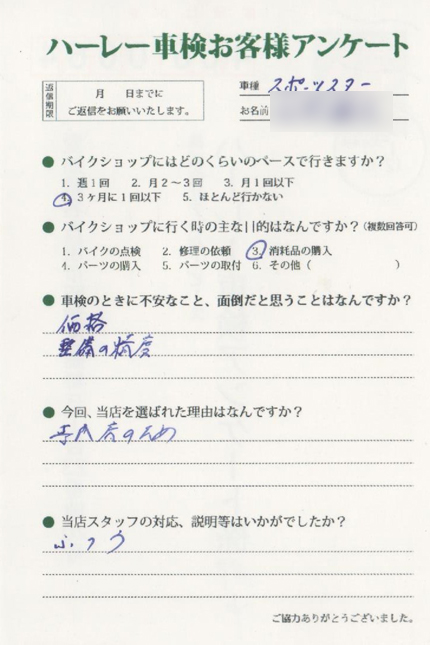 ハーレー車検お客様アンケート
返信期限
月 日までに
ご返信をお願いいたします。
車種 スポーツスター
お名前
● バイクショップにはどのくらいのペースで行きますか?
1. 週1回 2. 月2〜3回 3. 月1回以下
4. 3ヶ月に1回以下 5. ほとんど行かない
● バイクショップに行く時の主な目的はなんですか?(複数回答可)
1. バイクの点検 2. 修理の依頼 3. 消耗品の購入
4. パーツの購入 5. パーツの取付 6. その他( )
● 車検のときに不安なこと、面倒だと思うことはなんですか?
価格
整備の精度
● 今回、当店を選ばれた理由はなんですか?
のため
● 当店スタッフの対応、説明等はいかがでしたか?
ふつう
ご協力ありがとうございました。